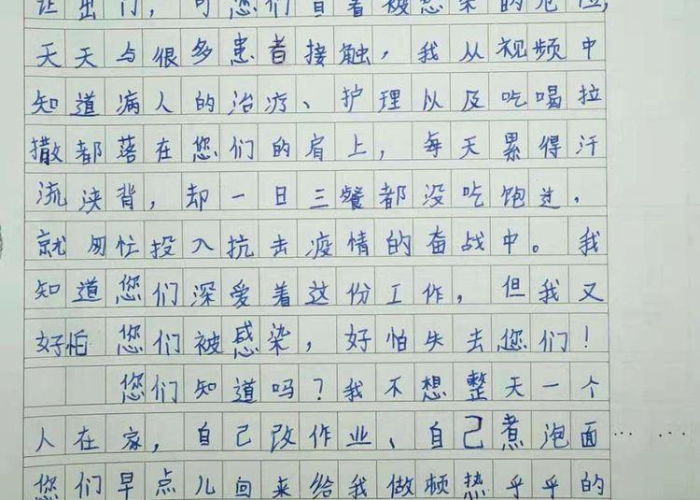 让出门，可您们冒着被感染的危险，
天天与很多患者接触，我从视频中
知道病人的治疗、护理以及吃喝拉
撒都落在您们的肩上，每天累得汗
流浃背，却一日三餐都没吃饱过，
就匆忙投入抗击疫情的奋战中。我
知道您们深爱着这份工作，但我又
好怕您们被感染，好怕失去您们！
您们知道吗？我不想整天一个
人在家，自己改作业、自己煮泡面……
您们早点儿回来给我做顿热乎乎的